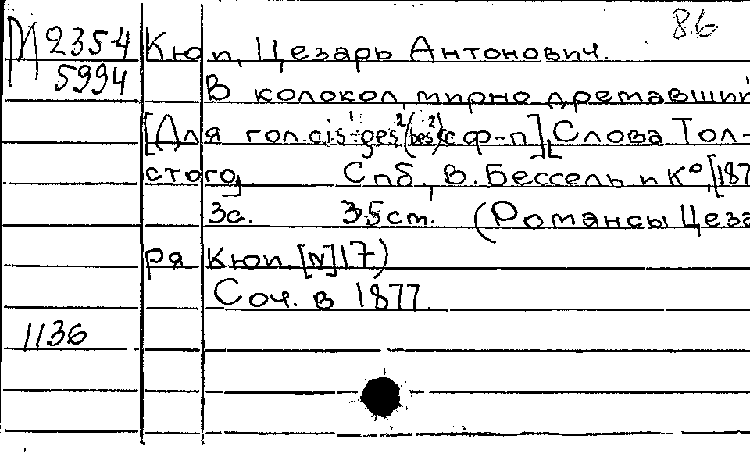 86
М 2354 Кюи, Цезарь Антонович.
5994
В колокол, мирно дремавший
[Для гол. cis¹-ges²(bes²) с ф-п], Слова Тол-
стого, Спб., В. Бессель и К°, [187
3с. 35см. (Романсы Цеза
ря Кюи. [N] 17)
Соч. в 1877.
1136